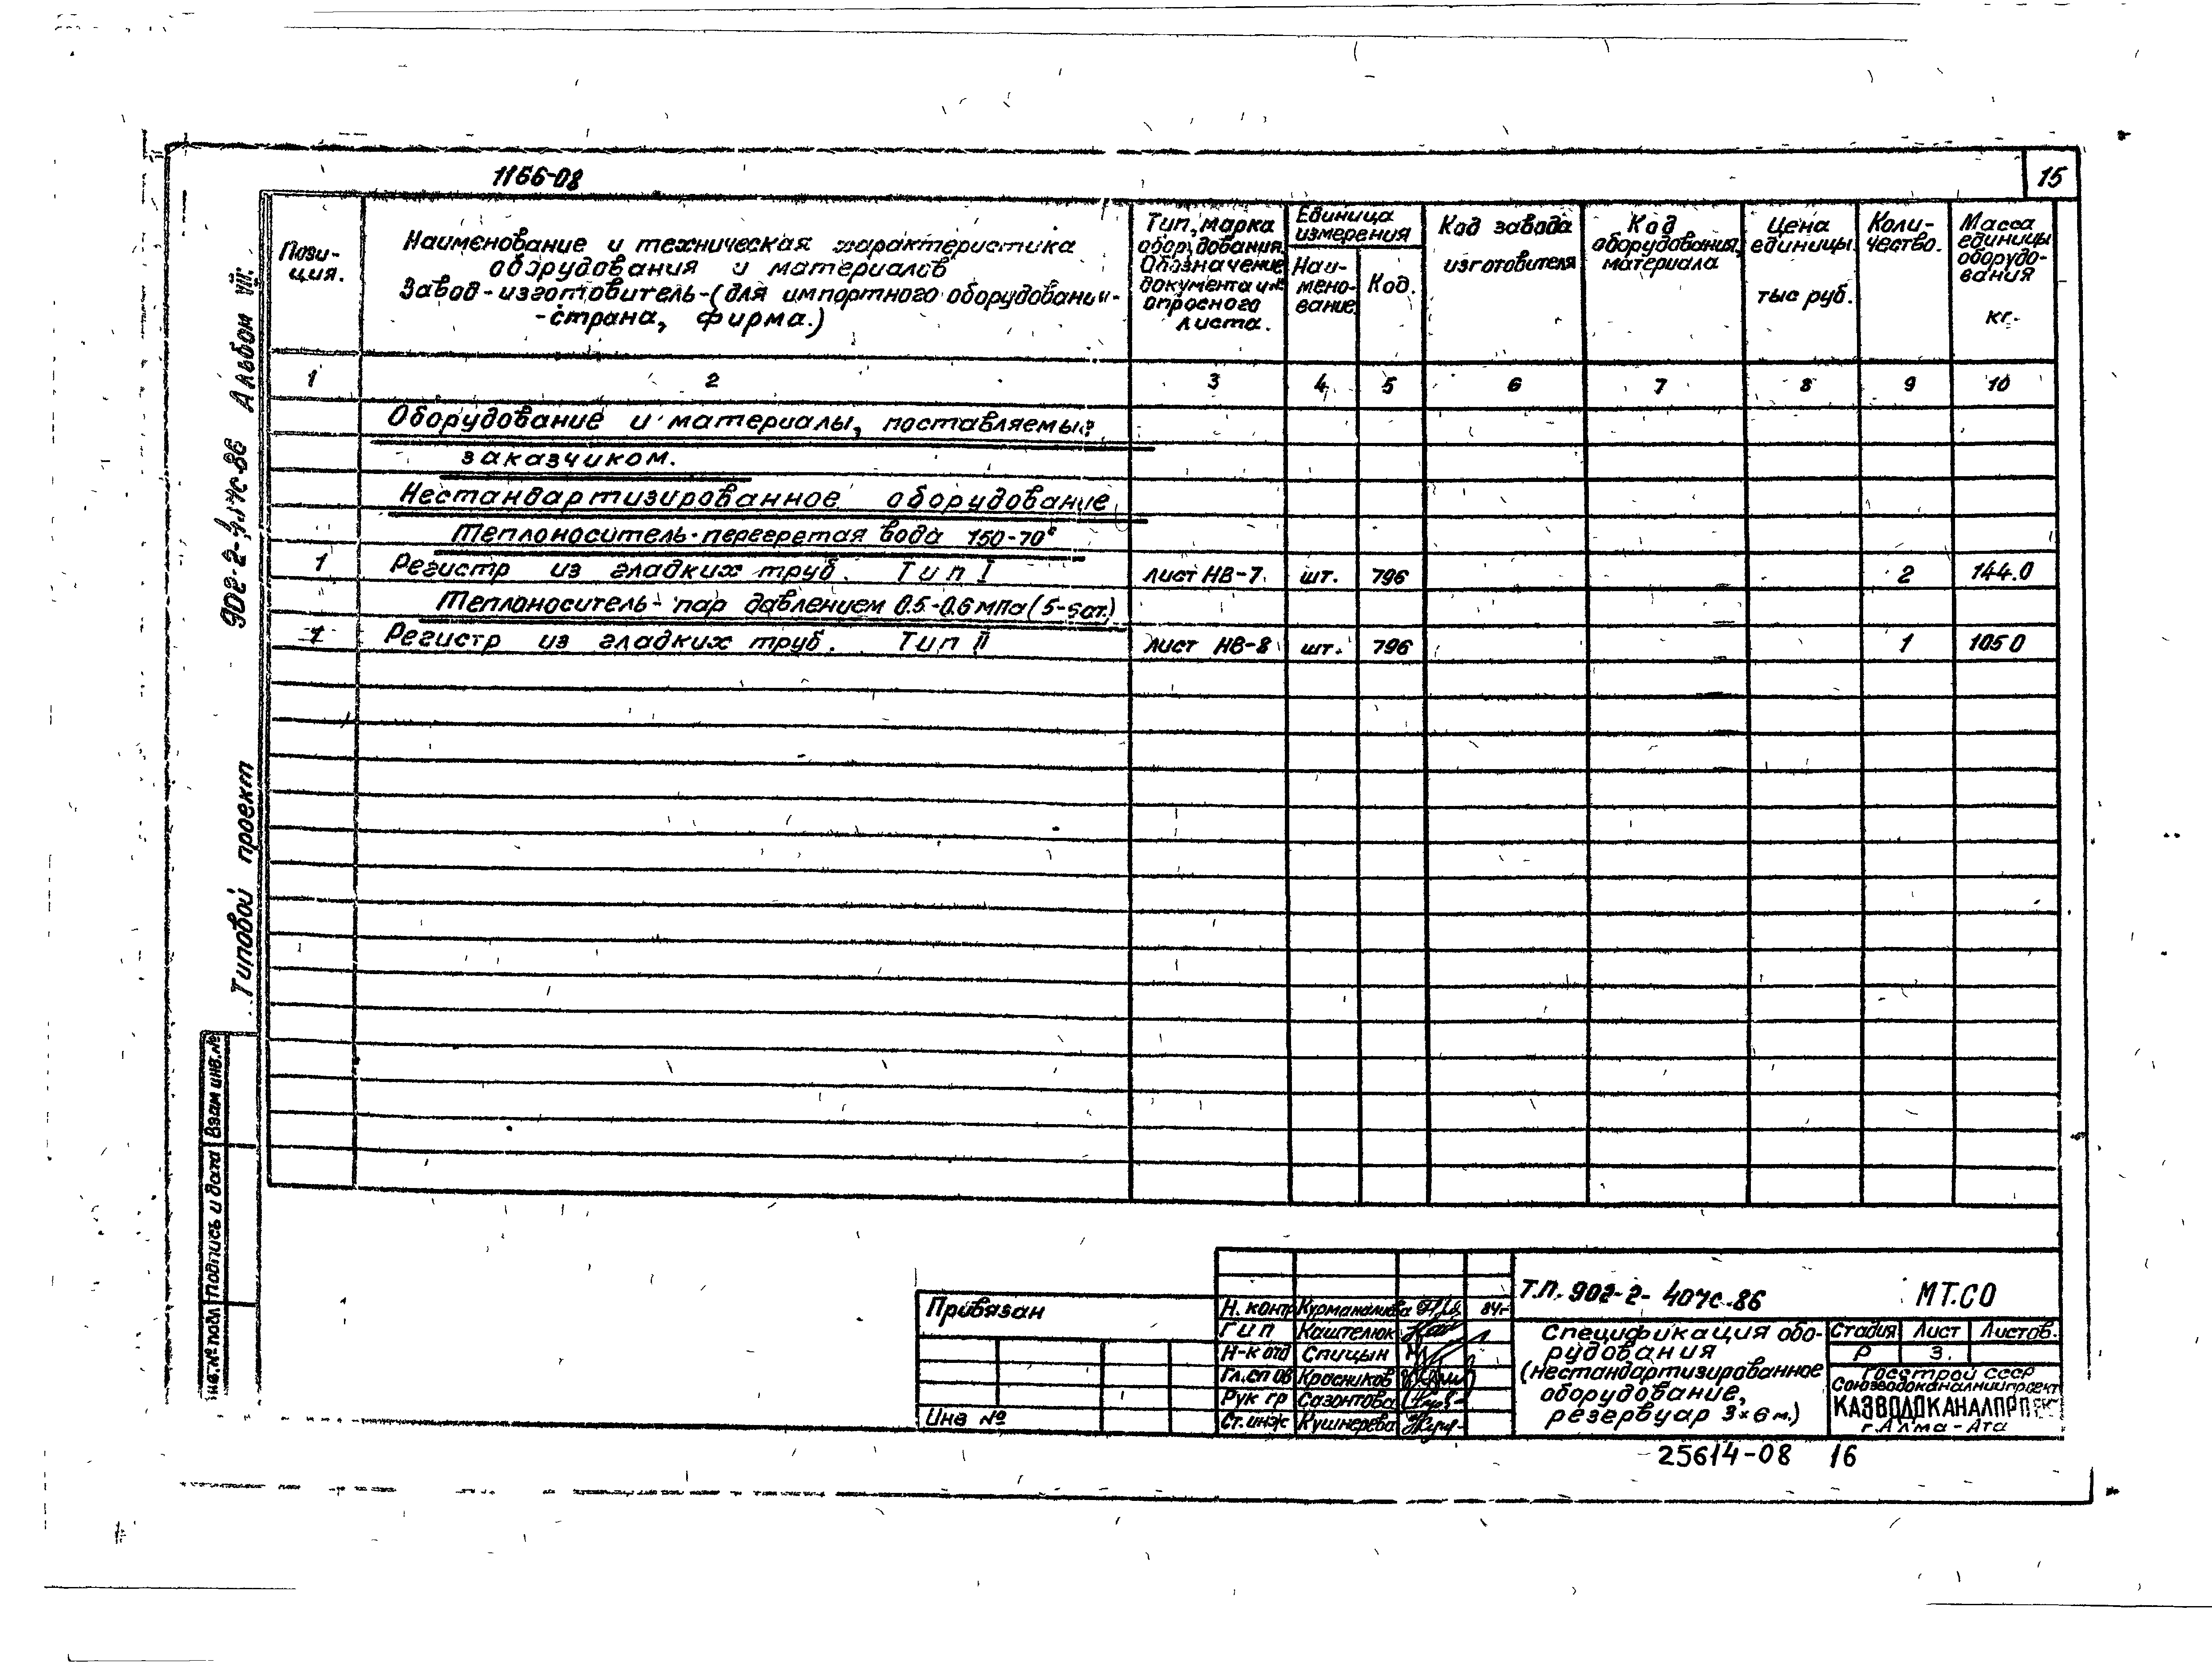 1166-08
15
Пози-
ция.
Наименование и техническая характеристика
оборудования и материалов
Завод-изготовитель-(для импортного оборудования-
-страна, фирма.)
Тип, марка
оборудования.
Обозначение
документа и №
опросного
листа.
Единица
измерения
Наи-
мено-
вание
Код.
Код завода
изготовителя
Код
оборудования,
материала
Цена
единицы
тыс руб.
Коли-
чество.
Масса
единицы
оборудо-
вания
кг.
1 2 3 4 5 6 7 8 9 10
Оборудование и материалы, поставляемые
заказчиком.
Нестандартизированное оборудование
Теплоноситель-перегретая вода 150-70°
1 Регистр из гладких труб. Тип I лист НВ-7. шт. 796 2 144.0
Теплоноситель-пар давлением 0.5-0.6 мПа (5-6ат.)
1 Регистр из гладких труб. Тип II лист НВ-8 шт. 796 1 105 0
Типовой проект 902-2- Альбом VIII.
Взам инв.№
Подпись и дата
инв.№ подл
Привязан
Инв №
Н. контр Курманалиева 84г
ГИП Каштелюк
Н-к отд Спицын
Гл.сп ов Красников
Рук гр Сазонтова
Ст.инж Кушнерева
Т.П. 902-2-407с.86 МТ.СО
Спецификация обо-
рудования
(нестандартизированное
оборудование,
резервуар 3×6м.)
Стадия Лист Листов.
Р 3.
Госстрой СССР
Союзводоканалниипроект
КАЗВОДОКАНАЛПРОЕКТ
г.Алма-Ата
25614-08 16